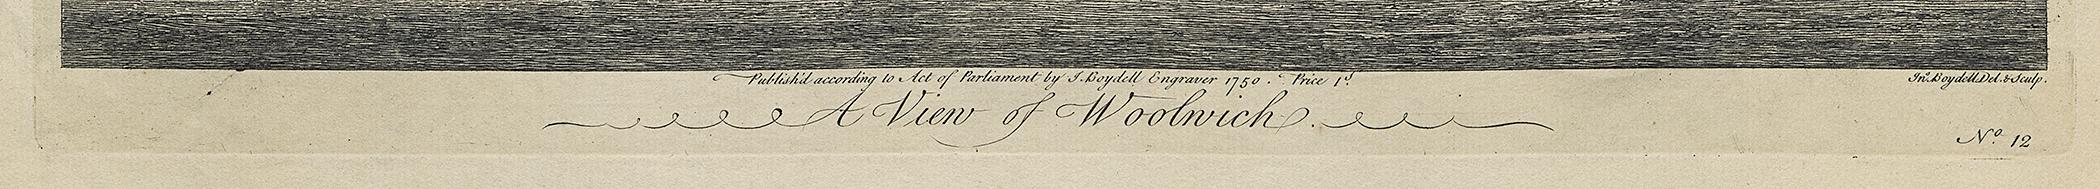 Publish'd according to Act of Parliament by J. Boydell Engraver 1750. Price 1s.
Jno. Boydell Del. & Sculp.
A View of Woolwich.
No. 12